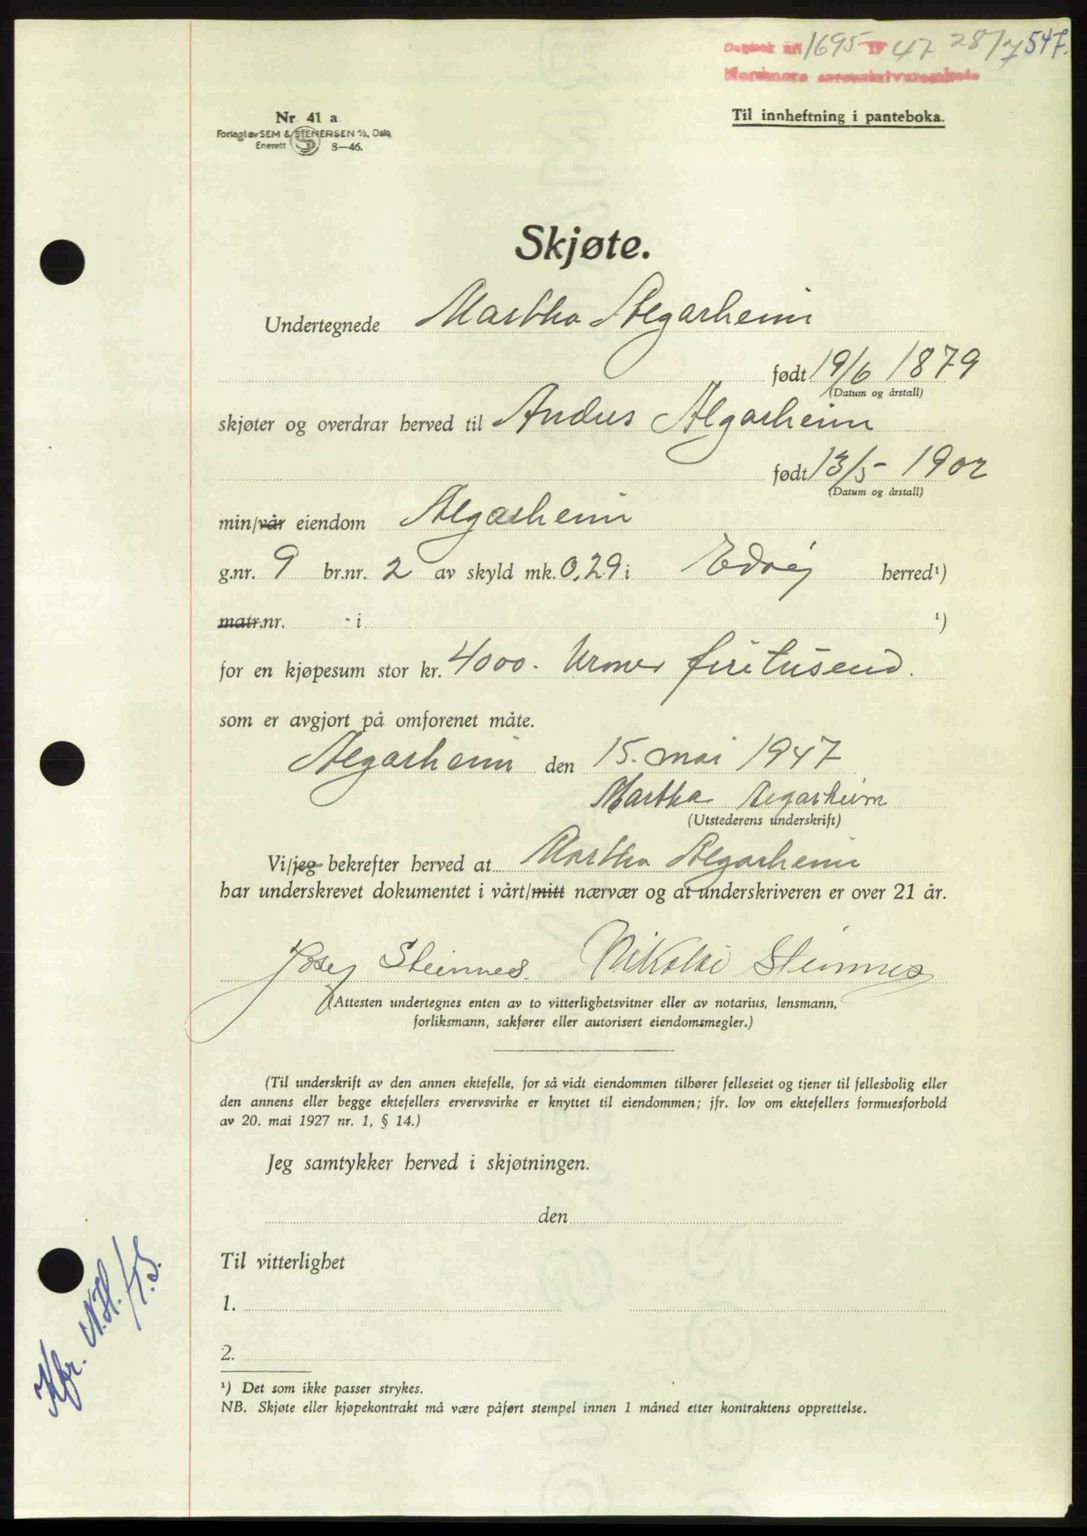 Dagbok nr. 1695 19 47 28/7 547.
Nordmøre sorenskriverembete
Nr 41 a
Forlagt av SEM & STENERSEN A/S, Oslo
Enerett 8—46.
Til innheftning i panteboka.
Skjøte.
Undertegnede Martha Algarheim
født 19/6 1879
(Datum og årstall)
skjøter og overdrar herved til Andres Algarheim
født 13/5 - 1902
(Datum og årstall)
min/vår eiendom Algarheim
g.nr. 9 br.nr. 2 av skyld mk. 0,29 i Edøy herred¹)
matr.nr. - i ¹)
for en kjøpesum stor kr. 4000. Kroner firetusend.
som er avgjort på omforenet måte.
Algarheim den 15. mai 1947
Martha Algarheim
(Utstederens underskrift)
Vi/jeg bekrefter herved at Martha Algarheim
har underskrevet dokumentet i vårt/mitt nærvær og at underskriveren er over 21 år.
Josef Steinnes. Nikolai Steinnes
(Attesten undertegnes enten av to vitterlighetsvitner eller av notarius, lensmann,
forliksmann, sakfører eller autorisert eiendomsmegler.)
(Til underskrift av den annen ektefelle, for så vidt eiendommen tilhører felleseiet og tjener til fellesbolig eller
den annens eller begge ektefellers ervervsvirke er knyttet til eiendommen; jfr. lov om ektefellers formuesforhold
av 20. mai 1927 nr. 1, § 14.)
Jeg samtykker herved i skjøtningen.
den
Til vitterlighet
1.
2.
¹) Det som ikke passer strykes.
NB. Skjøte eller kjøpekontrakt må være påført stempel innen 1 måned etter kontraktens opprettelse.
Kfr. N.H. / T.S.